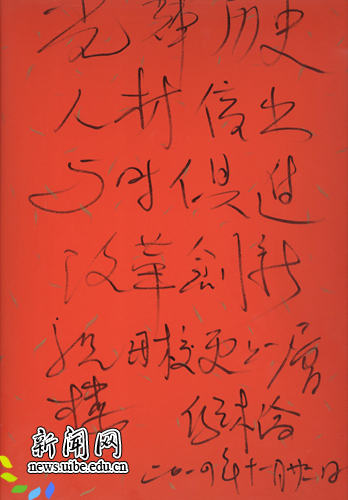 光辉历史
人材倍出
与时俱进
改革创新
祝母校更上一层
楼
二〇一〇年十一月廿二日
新闻网
news.uibe.edu.cn